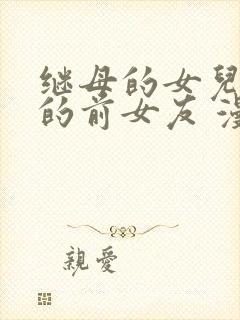 继母的女兒
的前女友 漫
親愛